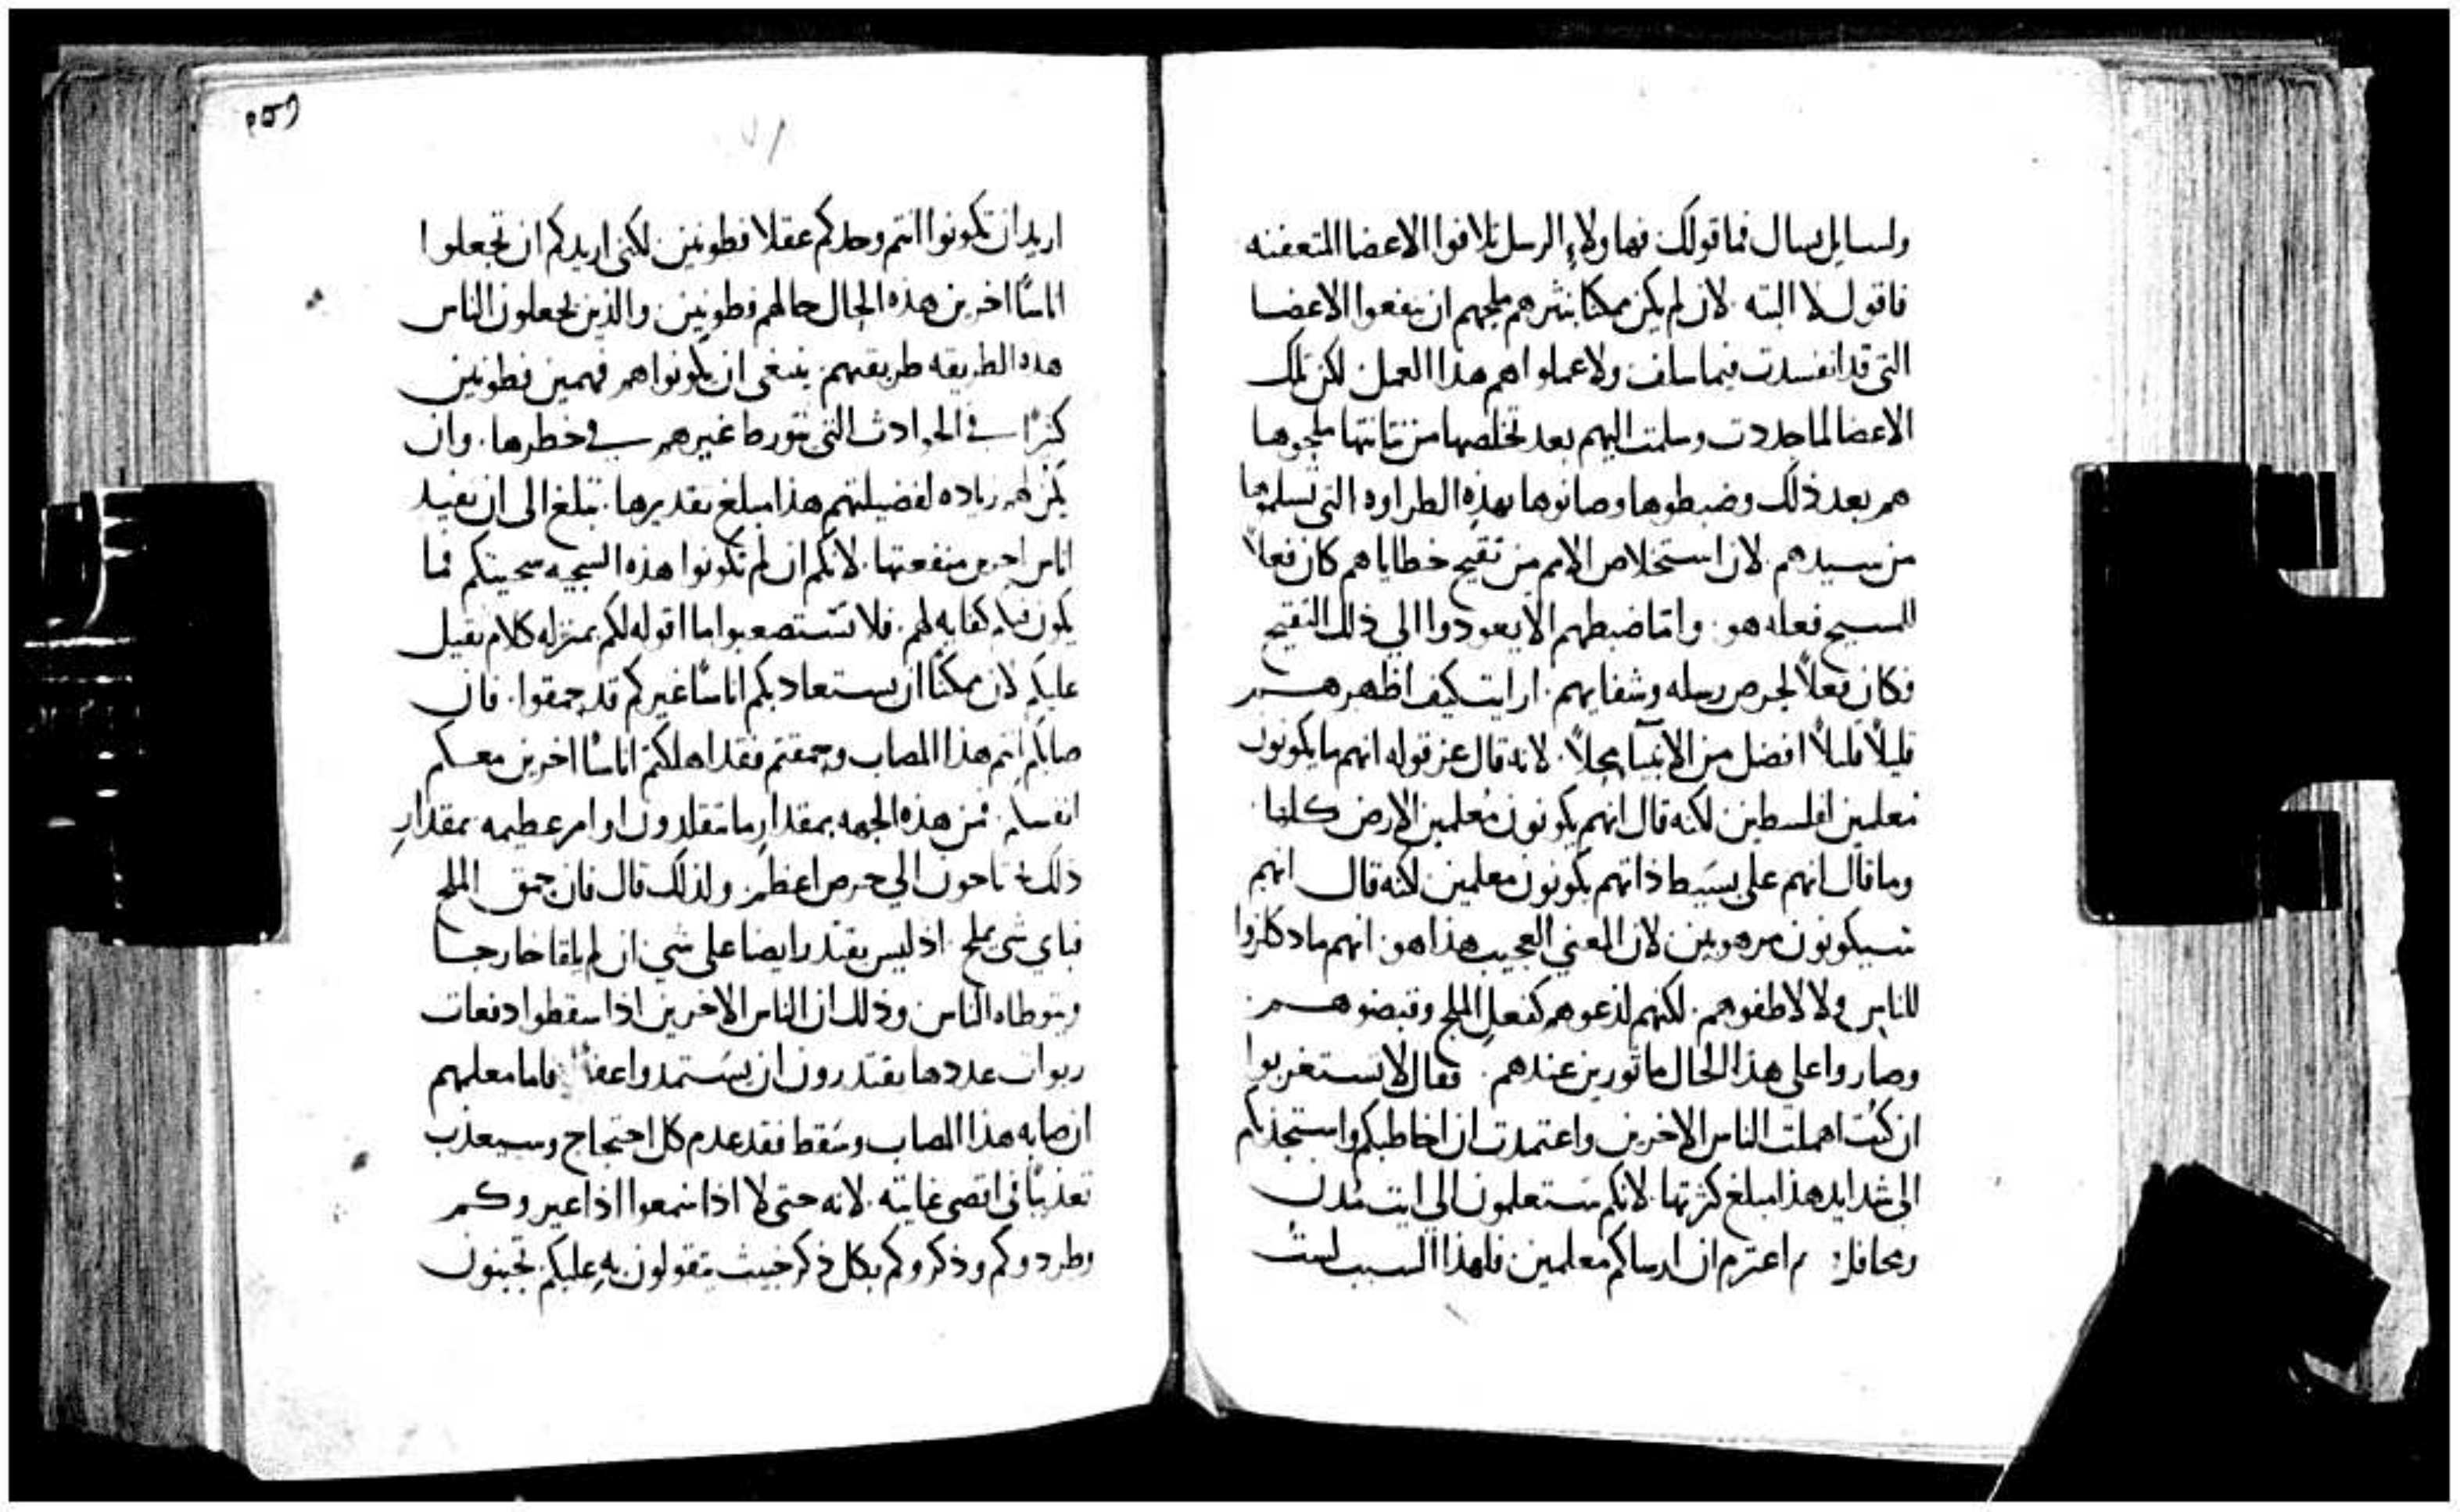 ولسايل يسال فما قولك فهاولاء الرسل تلافوا الاعضا المتعفنه
فاقول لا البته لان لم يكن ممكنا بنثرهم ملحهم ان ينفعوا الاعضا
التي قد انفسدت فيما سلف ولا عملوا هم هذا العمل لكن تلك
الاعضا لما جددت وسلمت اليهم بعد تخلصها من نتانتها ملحوها
هم بعد ذلك وضبطوها وصانوها بهذه الطراوه التي تسلموها
من سيدهم لان استخلاص الامم من تقيح خطاياهم كان فعلاً
للمسيح فعله هو واما ضبطهم الا يعودوا الي ذلك التقيح
فكان فعلاً لحرص رسله وشفايهم ارايت كيف اظهرهم
قليلاً قليلاً افضل من الانبيا محلاً لانه قال عن قوله انهم ما يكونون
معلمين لفلسطين لكنه قال انهم يكونون معلمين الارض كلها
وما قال انهم على بسيط ذاتهم يكونون معلمين لكنه قال انهم
سيكونون مرهوبين لان المعني العجيب هذا هو انهم ما دكلزوا
للناس ولا لاطفوهم لكنهم لذعوهم كفعل الملح وقبضوهم
وصاروا على هذا الحال ماثورين عندهم فقال لا تستغربوا
ان كنت اهملت الناس الاخرين واعتمدت ان اخاطبكم واستجذبكم
الى شدايد هذا مبلغ كثرتها لانكم ستعلمون الى ايت مدن
ومحافل اعتزم ان ارسلكم معلمين فلهذا السبب لست
٢٥٩
٧١
اريد ان تكونوا انتم وحدكم عقلا فطونين لكني اريدكم ان تجعلوا
اناسًا اخرين هذه الحال حالهم فطونين والذين يجعلون الناس
هذه الطريقه طريقهم ينبغي ان يكونوا هم فهمين فطونين
كثيرًا في الحوادث التي يتورط غيرهم في خطرها وان
يكن لهم زياده لفضيلتهم هذا مبلغ تقديرها تبلغ الى ان تفيد
اناس اخرين منفعتها لانكم ان لم تكونوا هذه السجيه سجيتكم فما
يكون كفايه لهم فلا تستصعبوا ما اقوله لكم بمنزله كلام ثقيل
عليكم لان ممكنًا ان يستعاد بكم اناسًا غيركم قد حمقوا فان
صابكم انتم هذا المصاب وحمقتم فقد اهلكتم اناسًا اخرين معكم
انفسكم فمن هذه الجهه بمقدار ما تقلدون اوامر عظيمه بمقدار
ذلك تحتاجون الي حرص اعظم ولذلك قال فان حمق الملح
فباي شي يملح اذ ليس يقتدر ايضا على شي ان لم يلقا خارجا
ويتوطاه الناس وذلك ان الناس الاخرين اذا سقطوا دفعات
ربوات عددها يقتدرون ان يستمدوا عفوًا فاما معلمهم
ان صابه هذا المصاب وسقط فقد عدم كل احتجاج وسيعذب
تعذيبًا في اقصى غايته لانه حتى لا اذا سمعوا اذا عيروكم
وطردوكم وذكروكم بكل ذكر خبيث يتقولون به عليكم تجبنون